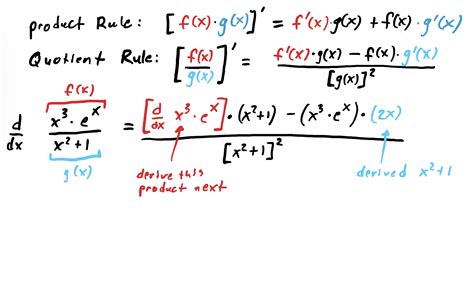 product Rule: [f(x)·g(x)]' = f'(x)·g(x) + f(x)·g'(x)
Quotient Rule: [f(x)/g(x)]' = f'(x)·g(x) − f(x)·g'(x) / [g(x)]²
f(x)
d/dx x³·eˣ / x²+1 = [d/dx x³·eˣ]·(x²+1) − (x³·eˣ)·(2x) / [x²+1]²
g(x)
derive this
product next
derived x²+1